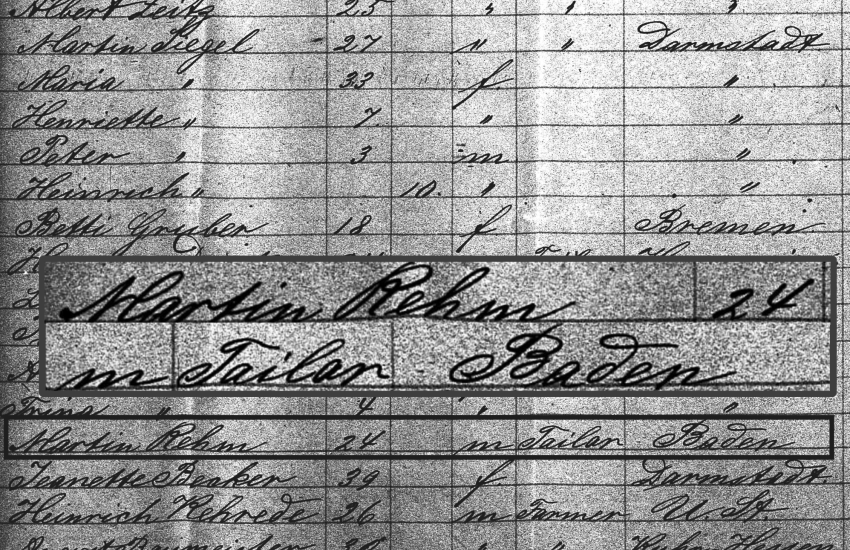 Albert Zeitz 25 " " "
Martin Siegel 27 " " Darmstadt
Maria " 33 f "
Henriette " 7 " "
Peter " 3 m "
Heinrich " 10 " "
Betti Gruber 18 f Bremen
Martin Rehm 24
m Tailar Baden
Trina " 4 " "
Martin Rehm 24 m Tailar Baden
Jeanette Beaker 39 f Darmstadt
Heinrich Kehrede 26 m Farmer U. St.